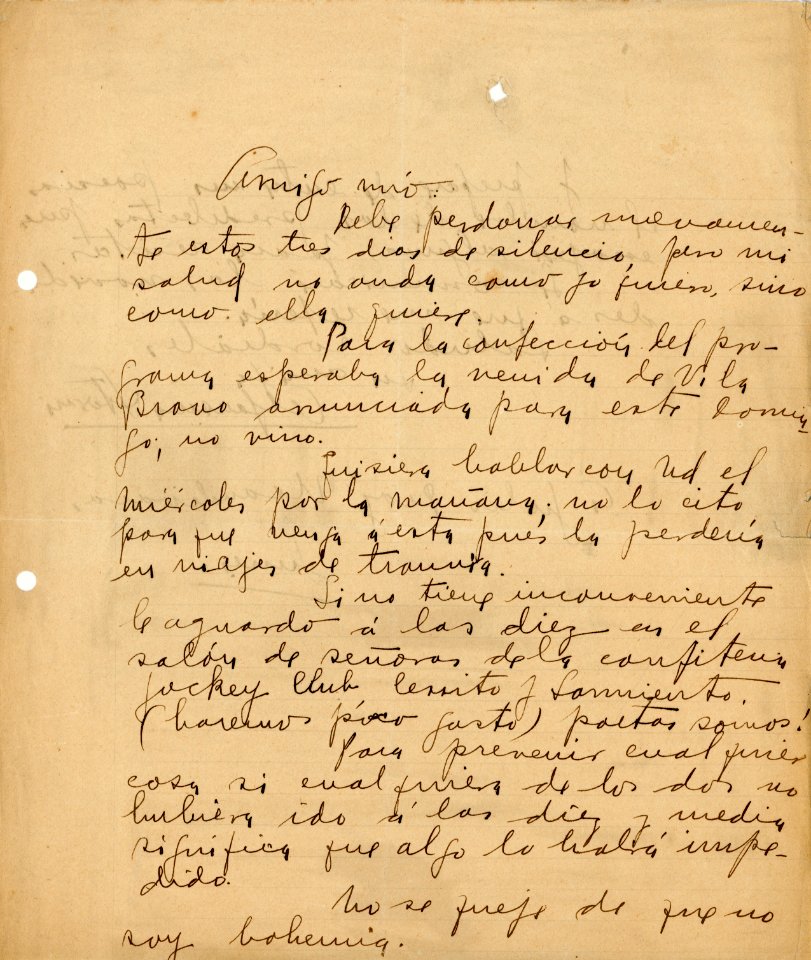 Amigo mío:
Debe perdonar nuevamen-
te estos tres dias de silencio, pero mi
salud no anda como yo quiero, sino
como ella quiere.
Para la confección del pro-
grama esperaba la venida de Vila
Bravo anunciada para este domin-
go; no vino.
Quisiera hablar con Ud el
miércoles por la mañana; no lo cito
para que venga á esta pués la perdería
en viajes de tranvía.
Si no tiene inconveniente
le aguardo á las diez en el
salón de señoras de la confiteria
Jockey Club Cerrito y Sarmiento.
(haremos poco gasto) poetas somos!
Para prevenir cualquier
cosa si cualquiera de los dos no
hubiera ido á las diez y media
significa que algo lo habrá impe-
dido.
No se queje de que no
soy bohemia.